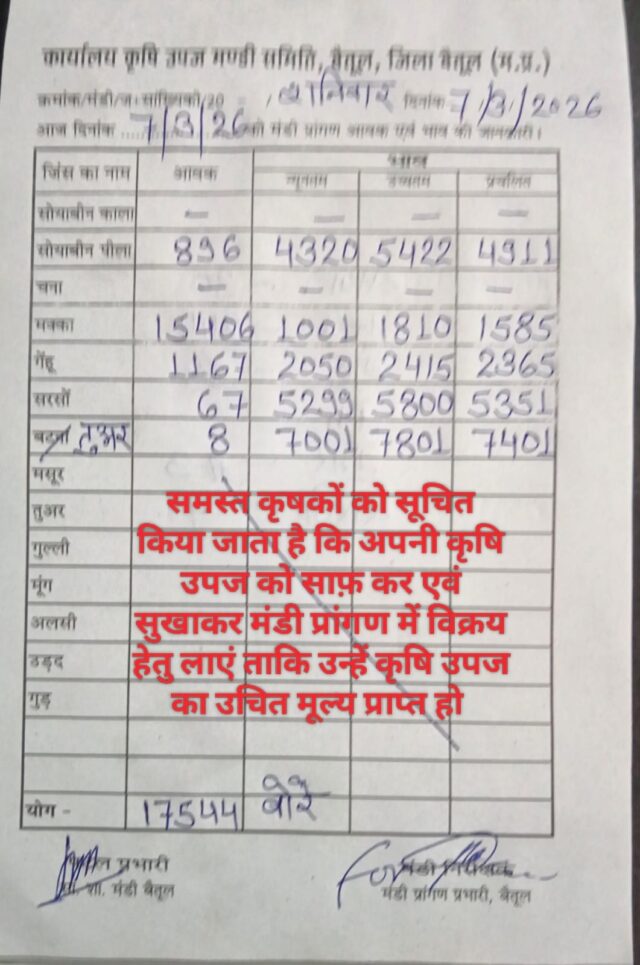 कार्यालय कृषि उपज मण्डी समिति, बैतूल, जिला बैतूल (म.प्र.)
क्रमांक/मंडी/ज। सांख्यिकी/20 , शनिवार दिनांक 7/3/2026
आज दिनांक 7/3/26 को मंडी प्रांगण आवक एवं भाव की जानकारी।
जिंस का नाम आवक भाव
न्यूनतम उच्चतम प्रचलित
सोयाबीन काला — — — —
सोयाबीन पीला 896 4320 5422 4911
चना — — — —
मक्का 15406 1001 1810 1585
गेंहू 1167 2050 2415 2365
सरसों 67 5299 5800 5351
बटरी तुअर 8 7001 7801 7401
मसूर
तुअर
गुल्ली
मूंग
अलसी
उड़द
गुड़
समस्त कृषकों को सूचित
किया जाता है कि अपनी कृषि
उपज को साफ़ कर एवं
सुखाकर मंडी प्रांगण में विक्रय
हेतु लाएं ताकि उन्हें कृषि उपज
का उचित मूल्य प्राप्त हो
योग - 17544 बोरे
प्रभारी
शा. मंडी बैतूल
मंडी निरीक्षक
मंडी प्रांगण प्रभारी, बैतूल